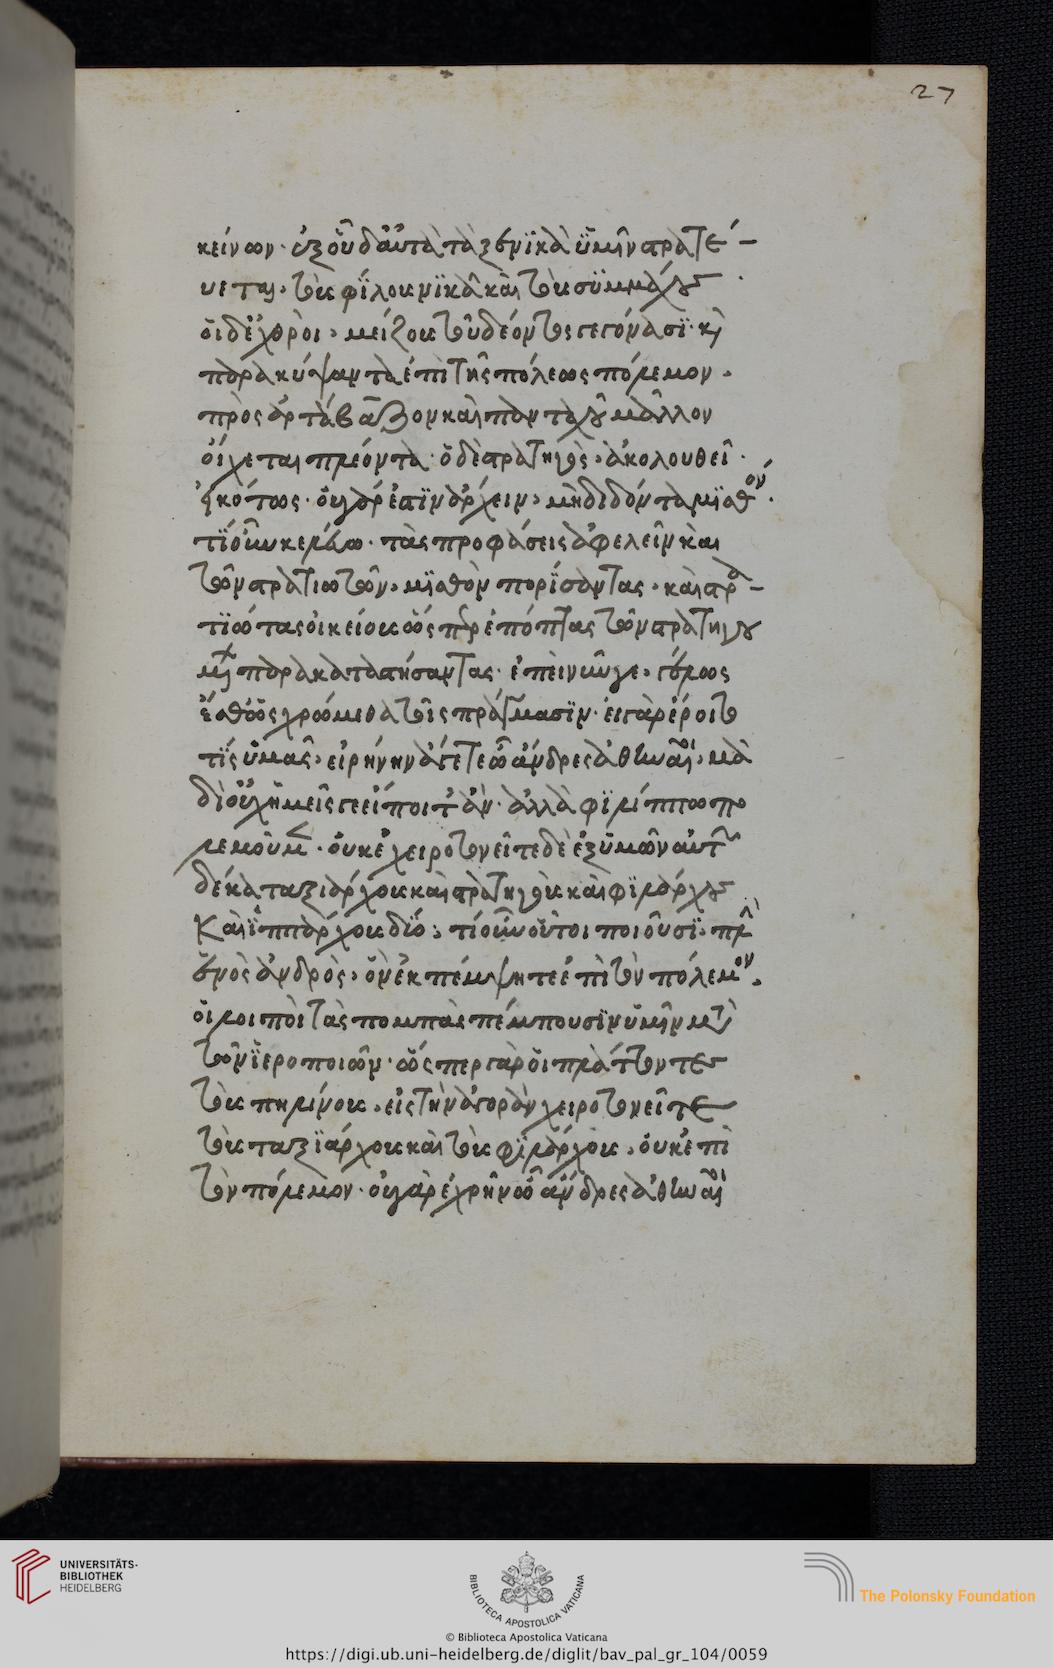 27
κείνων· ἐξ οὗ δ' αὐτὰ τὰ ξενικὰ ὑμῖν στρατεύ-
εται, τοὺς φίλους νικᾶ καὶ τοὺς συμμάχους·
οἱ δ' ἐχθροὶ, μείζους τοῦ δέοντος γεγόνασι· καὶ
παρακύψαντα ἐπὶ τῆς πόλεως πόλεμον.
πρὸς ἀρτάβαζον καὶ πανταχοῦ μᾶλλον
οἴχεται πλέοντα· ὁ δὲ στρατηγὸς, ἀκολουθεῖ·
εἰκότως· οὐ γάρ ἐστιν ἄρχειν, μὴ διδόντα μισθόν.
τί οὖν κελεύω· τὰς προφάσεις ἀφελεῖν καὶ
τῶν στρατιωτῶν, μισθὸν πορίσαντας, καὶ στρα-
τιώτας οἰκείους ὥσπερ ἐπόπτας τῶν στρατηγου
μένων παρακαταστήσαντας· ἐπεὶ νῦν γε, γέλως
ἔσθ' ὡς χρώμεθα τοῖς πράγμασιν· εἰ γὰρ ἔροιτο
τίς ὑμᾶς, εἰρήνην ἄγετε ὦ ἄνδρες ἀθηναῖοι, μὰ
δί' οὐχ ἡμεῖς γε εἴποιτ' ἄν· ἀλλὰ φιλίππω πο
λεμοῦμεν· οὐκ ἐχειροτονεῖτε δὲ ἐξ ὑμῶν αὐτῶν
δέκα ταξιάρχους καὶ στρατηγοὺς καὶ φιλάρχους
καὶ ἱππάρχους δύο; τί οὖν οὗτοι ποιοῦσι. πλὴν
ἑνὸς ἀνδρὸς, ὃν ἐκπέμψητε ἐπὶ τὸν πόλεμον.
οἱ λοιποὶ τὰς πομπὰς πέμπουσιν ὑμῖν μετὰ
τῶν ἱεροποιῶν· ὥσπερ γὰρ οἱ πλάττοντες
τοὺς πηλίνους, εἰς τὴν ἀγορὰν χειροτονεῖτε
τοὺς ταξιάρχους καὶ τοὺς φιλάρχους, οὐκ ἐπὶ
τὸν πόλεμον· οὐ γὰρ ἐχρῆν ὦ ἄνδρες ἀθηναῖοι
UNIVERSITÄTS-
BIBLIOTHEK
HEIDELBERG
BIBLIOTECA APOSTOLICA VATICANA
© Biblioteca Apostolica Vaticana
The Polonsky Foundation
https://digi.ub.uni-heidelberg.de/diglit/bav_pal_gr_104/0059